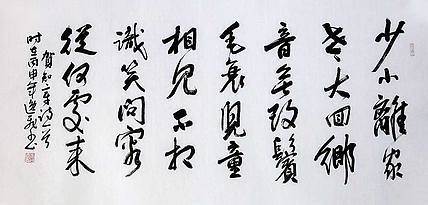 少小離家
老大回鄉
音無改鬢
毛衰兒童
相見不相
識笑問客
從何處來
賀知章詩一首
时在丙申年